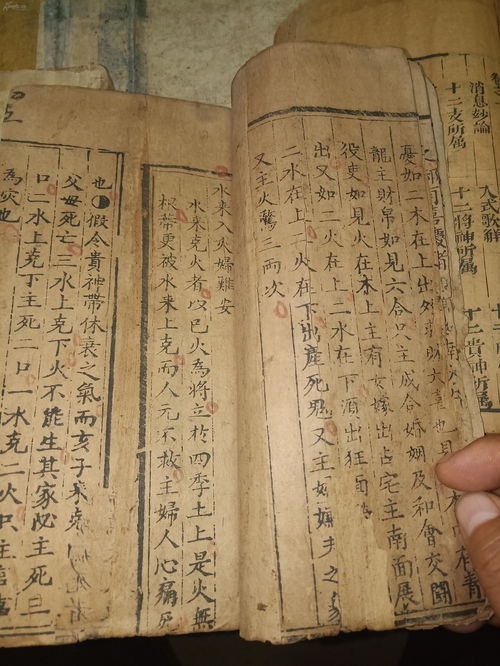 消息妙論
十二支所属
入式歌觧
十二將神所属
十二貴神所属
憂如二木在上出外財大喜也見
龍主財帛如見六合只主成合婚姻及和會交關
役吏如見火在木上主有女嫁出占宅主南面展
出又如二火在上二水在下酒出狂
二水在上一火在下出産死又主夫之
又主火驚三兩次
水来入火婦難安
水来克火者以巳火為將立於四季土上是火無
根蒂更被水来上克而人元不救主婦人心痛死
也假令貴神帶休衰之氣而亥子来克
父母死亡三水上克下火不能生其家必主死三
口二水上克下主死二口一水克二火只主
為灾也